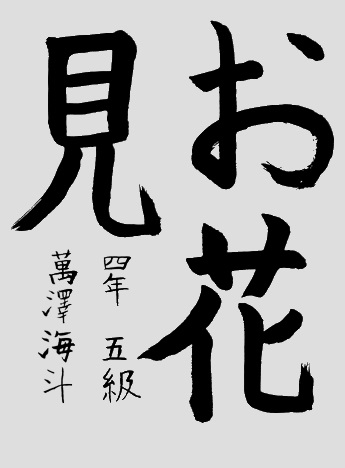 お花
見
四年 五級
萬澤海斗